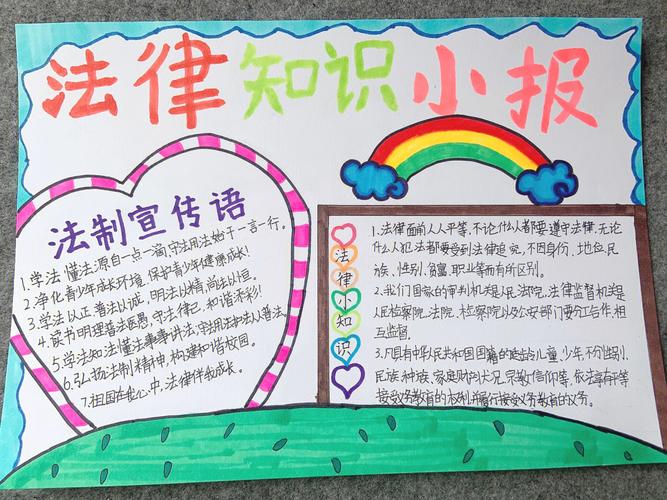 法律知识小报
法制宣传语
1.学法懂法源自一点一滴,守法用法始于一言一行。
2.净化青少年成长环境,保护青少年健康成长!
3.学法以正 普法以诚,明法以精尚法以恒。
4.读书明理善法医愚,守法律己,和谐添彩!
5.学法知法懂法事事讲法,守法用法护法人人普法。
6.弘扬法制精神,构建和谐校园。
7.祖国在我心中,法律伴我成长。
法律小知识
1.法律面前人人平等,不论什么人都要遵守法律,无论
什么人犯法都要受到法律追究,不因身份、地位、民
族、性别、贫富、职业等而有所区别。
2.我们国家的审判机关是人民法院,法律监督机关是
人民检察院。法院、检察院以及公安部门要分工合作,相
互监督。
3.凡具有中华人民共和国国籍的适龄的儿童、少年,不分性别、
民族、种族、家庭财产状况、宗教信仰等,依法享有平等
接受义务教育的权利,并履行接受义务教育的义务。